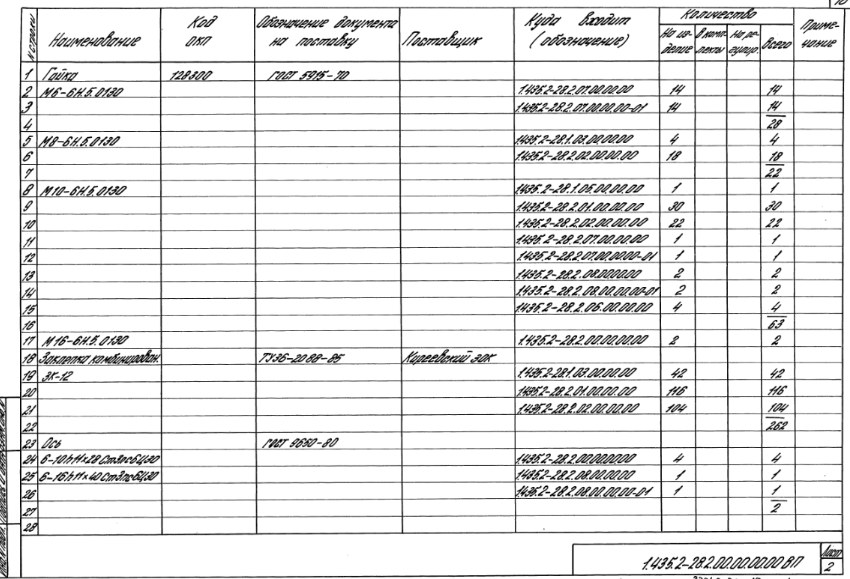 10
N строки Наименование Код ОКП Обозначение документа на поставку Поставщик Куда входит (обозначение) Количество На изделие В комплекты На регулир. Всего Примечание
1 Гайка 128300 ГОСТ 5915-70
2 М6-6Н.5.0130 1.435.2-28.2.07.00.00.00 14 14
3 1.435.2-28.2.07.00.00.00-01 14 14
4 28
5 М8-6Н.5.0130 1.435.2-28.1.03.00.00.00 4 4
6 1.435.2-28.2.02.00.00.00 18 18
7 22
8 М10-6Н.5.0130 1.435.2-28.1.05.00.00.00 1 1
9 1.435.2-28.2.01.00.00.00 30 30
10 1.435.2-28.2.02.00.00.00 22 22
11 1.435.2-28.2.07.00.00.00 1 1
12 1.435.2-28.2.07.00.00.00-01 1 1
13 1.435.2-28.2.08.00.00.00 2 2
14 1.435.2-28.2.08.00.00.00-01 2 2
15 1.435.2-28.2.06.00.00.00 4 4
16 63
17 М16-6Н.5.0130 1.435.2-28.2.00.00.00.00 2 2
18 Заклепка комбинирован. ТУ36-2088-85 Киреевский ЗЛК
19 ЗК-12 1.435.2-28.1.03.00.00.00 42 42
20 1.435.2-28.2.01.00.00.00 116 116
21 1.435.2-28.2.02.00.00.00 104 104
22 262
23 Ось ГОСТ 9650-80
24 6-10h11×28 Ст3псбЦ30 1.435.2-28.2.00.00.00.00 4 4
25 6-16h11×40 Ст3псбЦ30 1.435.2-28.2.08.00.00.00 1 1
26 1.435.2-28.2.08.00.00.00-01 1 1
27 2
28
1.435.2-28.2.00.00.00.00 ВП Лист
2